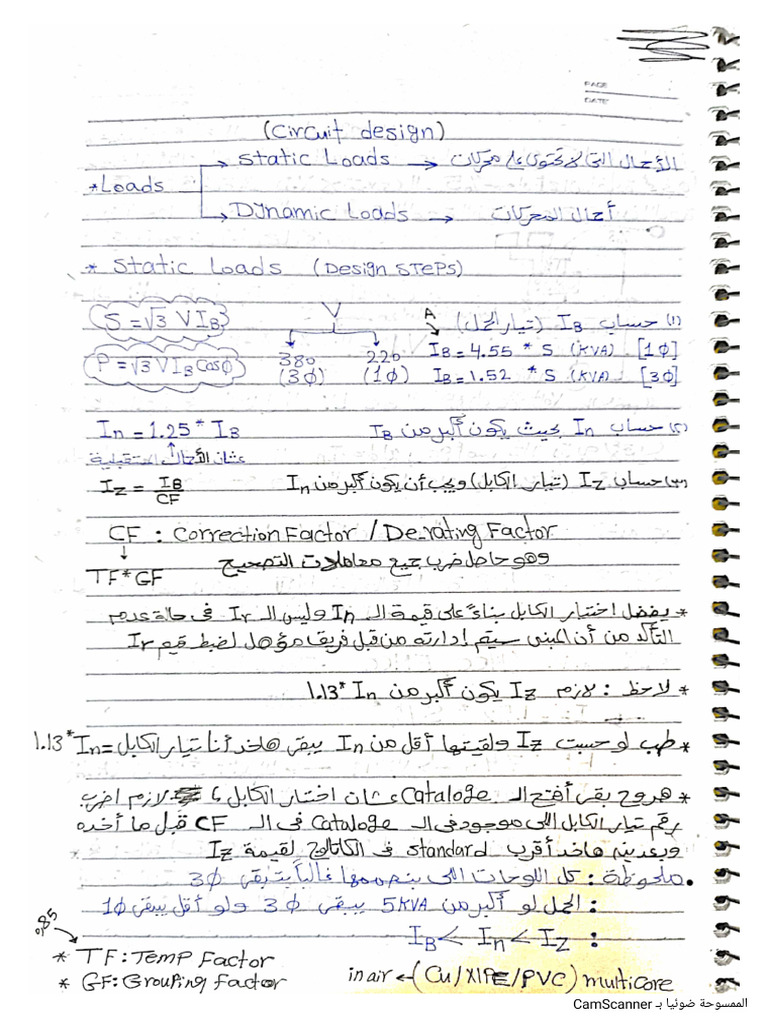 PAGE
DATE
(Circuit design)
*Loads
Static Loads → الأحمال التي لا تحتوي على محركات
Dynamic Loads → أحمال المحركات
* Static Loads (Design STEPS)
S = √3 V I_B
P = √3 V I_B Cosϕ
V
380 (3ϕ)
220 (1ϕ)
(١) حساب I_B (تيار الحمل)
A
I_B = 4.55 * S (KVA) [1ϕ]
I_B = 1.52 * S (KVA) [3ϕ]
(٢) حساب In بحيث يكون أكبر من I_B
In = 1.25 * I_B
عشان الأحمال المستقبلية
(٣) حساب I_Z (تيار الكابل) ويجب أن يكون أكبر من In
I_Z = I_B / CF
CF : Correction Factor / De_rating Factor
وهو حاصل ضرب جميع معاملات التصحيح
TF*GF
* يفضل اختيار الكابل بناءً على قيمة الـ In وليس الـ Ir في حالة عدم
التأكد من أن المبنى سيتم إدارته من قبل فريق مؤهل لضبط قيم Ir
* لاحظ : لازم I_Z يكون أكبر من 1.13* In
* طب لو حسبت I_Z ولقيتها أقل من In يبقى هاخد أنا تيار الكابل = 1.13* In
* هروح بقى أفتح الـ Cataloge عشان اختار الكابل، لازم اضرب
رقم تيار الكابل اللي موجود في الـ Cataloge في الـ CF قبل ما أخده
وبعدين هاخد أقرب standard في الكتالوج لقيمة I_Z
• ملحوظة : كل اللوحات اللي بنصممها غالباً بتبقى 3ϕ
: الحمل لو أكبر من 5KVA يبقى 3ϕ ولو أقل يبقى 1ϕ
: I_B < In < I_Z
0,85
* TF: Temp Factor
* GF: Grouping factor
in air ← (Cu/XlPE/PVC) multicore
الممسوحة ضوئيا بـ CamScanner